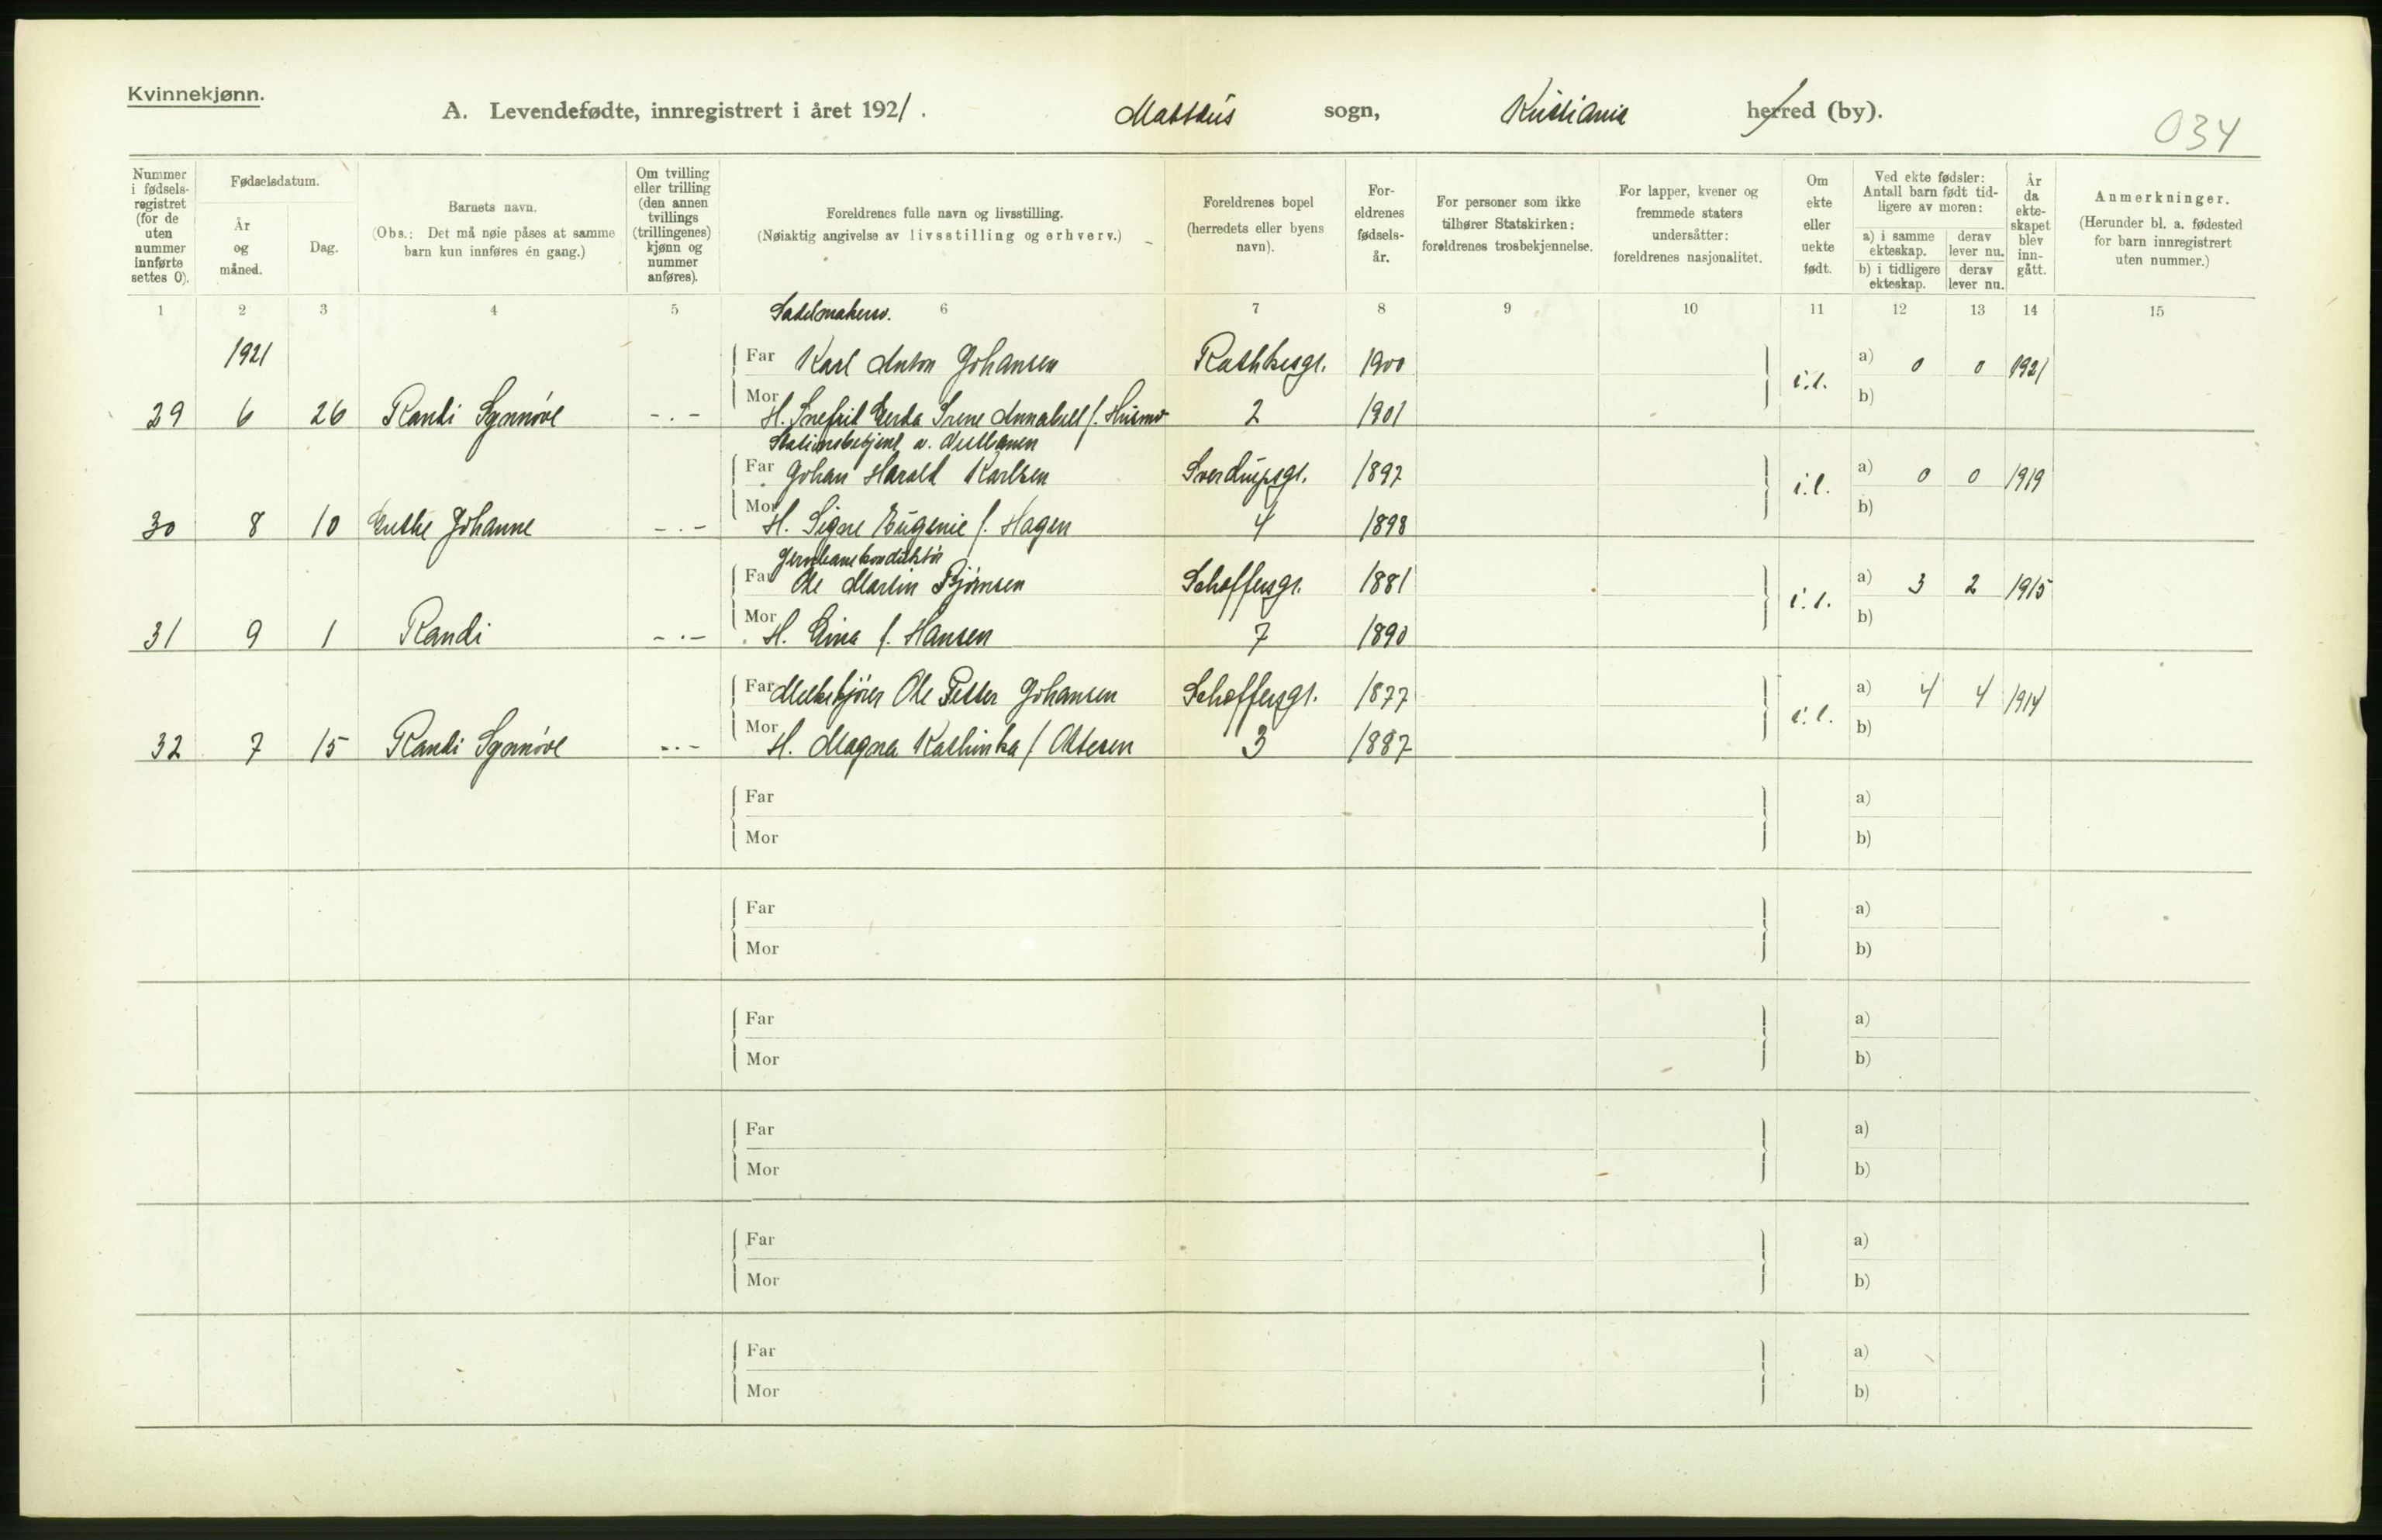 Kvinnekjønn.
A. Levendefødte, innregistrert i året 1921. Mattéus sogn, Kristiania herred (by).
034
Nummer i fødselsregistret (for de uten nummer innførte settes 0).
Fødselsdatum.
År og måned.
Dag.
Barnets navn.
(Obs.: Det må nøie påses at samme barn kun innføres én gang.)
Om tvilling eller trilling (den annen tvillings (trillingenes) kjønn og nummer anføres).
Foreldrenes fulle navn og livsstilling.
(Nøiaktig angivelse av livsstilling og erhverv.)
Foreldrenes bopel (herredets eller byens navn).
Foreldrenes fødselsår.
For personer som ikke tilhører Statskirken: foreldrenes trosbekjennelse.
For lapper, kvener og fremmede staters undersåtter: foreldrenes nasjonalitet.
Om ekte eller uekte født.
Ved ekte fødsler: Antall barn født tidligere av moren:
a) i samme ekteskap. derav lever nu.
b) i tidligere ekteskap. derav lever nu.
År da ekteskapet blev inngått.
Anmerkninger.
(Herunder bl. a. fødested for barn innregistrert uten nummer.)
1 2 3 4 5 6 7 8 9 10 11 12 13 14 15
Sadelmakersv.
1921 Far Karl Anton Johansen Rathkesgt. 1900 a) 0 0 1921
29 6 26 Randi Synnøve -.- Mor H. Snefrid Gerda Irene Annabell f. Husmo 2 1901 i.l. b)
Stationsbetjent v. Vestbanen
Far Johan Harald Karlsen Sverdrupsgt. 1897 a) 0 0 1919
30 8 10 Grethe Johanne -.- Mor H. Signe Eugenie f. Hagen 4 1898 i.l. b)
Jernbanekonduktør
Far Ole Martin Bjørnsen Schoffersgt. 1881 a) 3 2 1915
31 9 1 Randi -.- Mor H. Eina f. Hansen 7 1890 i.l. b)
Far Melkekjører Ole Petter Johansen Schoffersgt. 1877 a) 4 4 1914
32 7 15 Randi Synnøve -.- Mor H. Magna Kathinka f. Ottesen 3 1887 i.l. b)
Far a)
Mor b)
Far a)
Mor b)
Far a)
Mor b)
Far a)
Mor b)
Far a)
Mor b)
Far a)
Mor b)